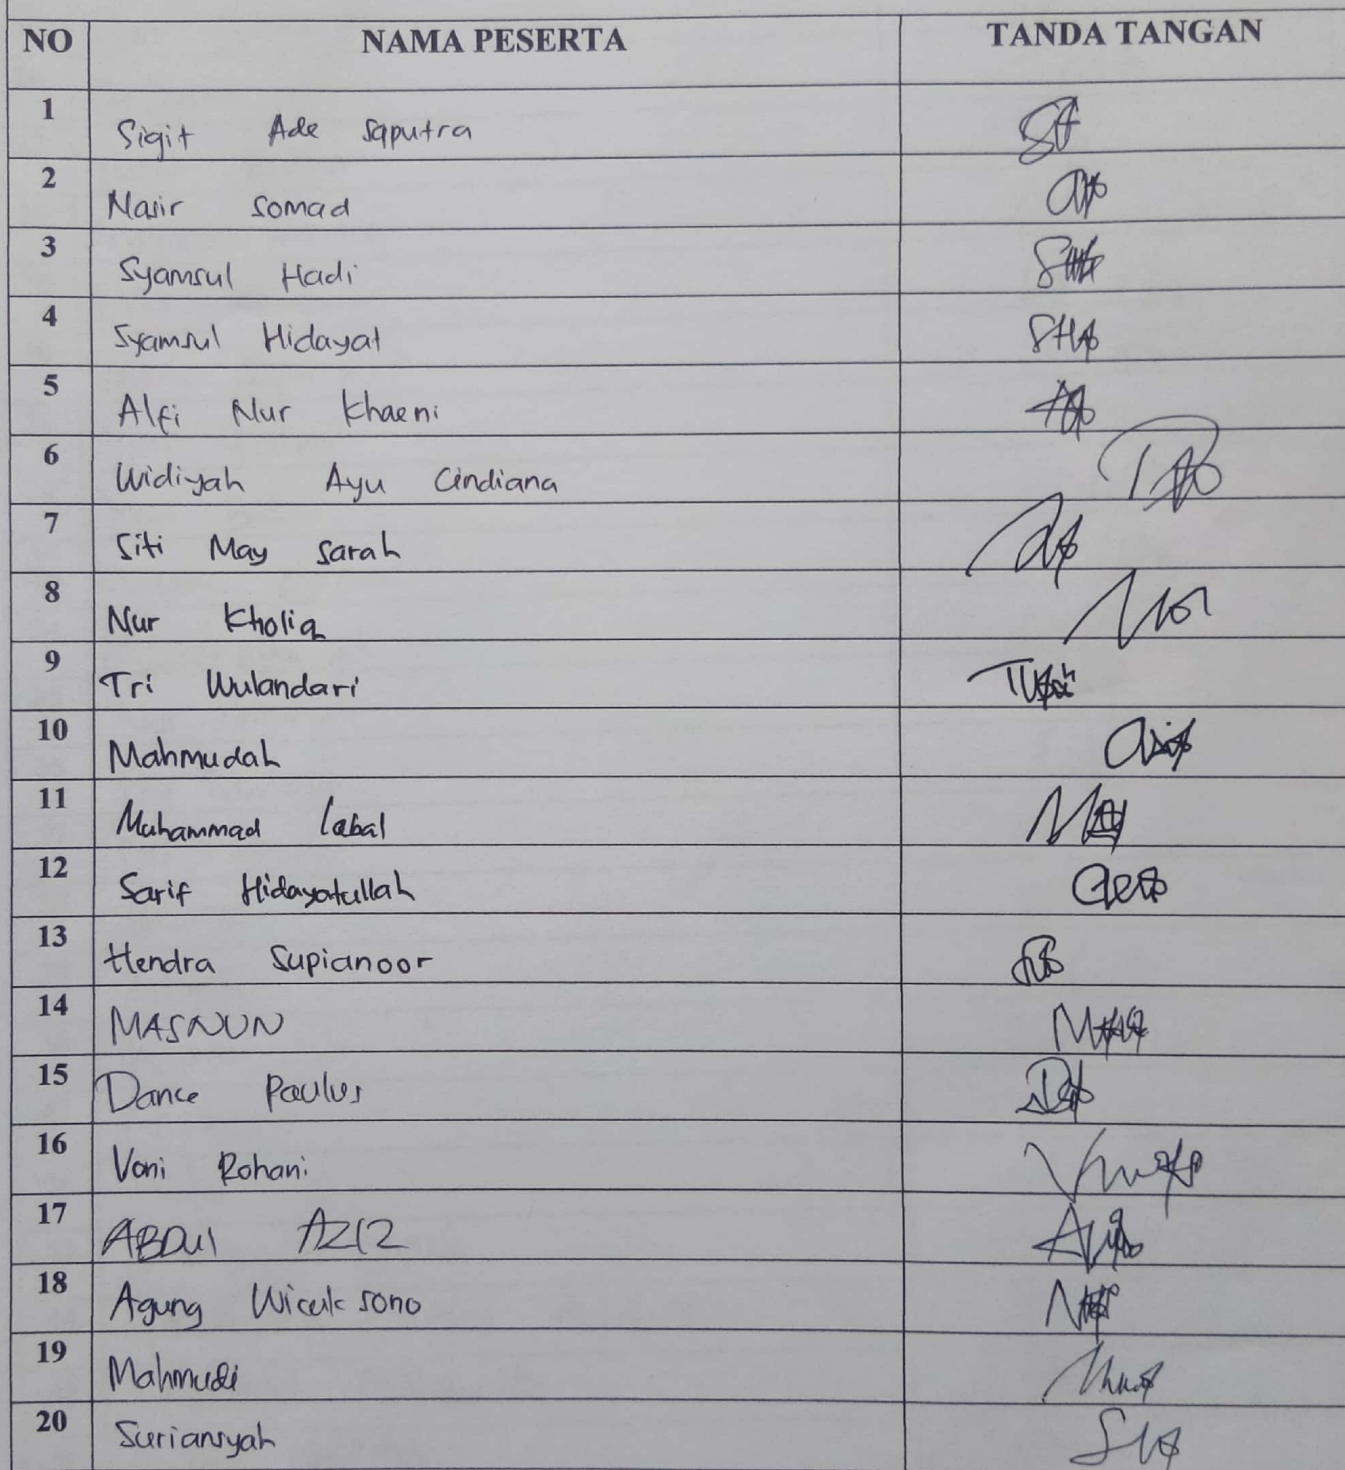 NO NAMA PESERTA TANDA TANGAN
1 Sigit Ade Saputra
2 Nasir Somad
3 Syamsul Hadi
4 Syamsul Hidayat
5 Alfi Nur Khaeni
6 Widiyah Ayu Cindiana
7 Siti May Sarah
8 Nur Kholiq
9 Tri Wulandari
10 Mahmudah
11 Muhammad Iqbal
12 Sarif Hidayatullah
13 Hendra Supianoor
14 MASNUN
15 Dance Paulus
16 Voni Rohani
17 ABDUl AZIZ
18 Agung Wicaksono
19 Mahmudi
20 Suriansyah